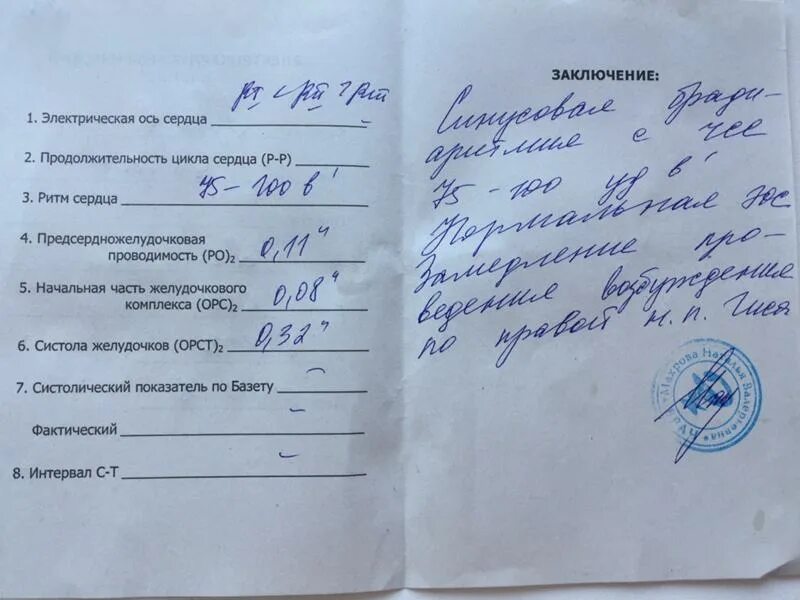 1. Электрическая ось сердца RI < RII > RIII
2. Продолжительность цикла сердца (Р-Р)
3. Ритм сердца 75 - 100 в '
4. Предсердножелудочковая
проводимость (РО)2 0,11"
5. Начальная часть желудочкового
комплекса (ОРС)2 0,08"
6. Систола желудочков (ОРСТ)2 0,32"
7. Систолический показатель по Базету –
Фактический –
8. Интервал С-Т –
ЗАКЛЮЧЕНИЕ:
Синусовая бради-
аритмия с чсс
75 - 100 уд в '
Нормальная эос
Замедление про-
ведения возбуждения
по правой н. п. Гиса
Махрова Наталья Валерьевна
ВРАЧ